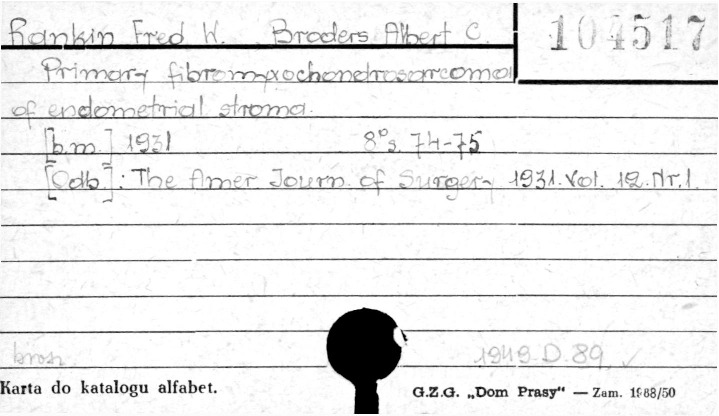 Rankin Fred W. Broders Albert C. 104517
Primary fibromyxochondrosarcoma
of endometrial stroma.
[b.m.] 1931 8° s. 74-75
[Odb]: The Amer. Journ. of Surgery 1931. Vol. 12. Nr. 1.
brosz. 1949. D. 89. ✓
Karta do katalogu alfabet. G.Z.G. „Dom Prasy“ — Zam. 1988/50